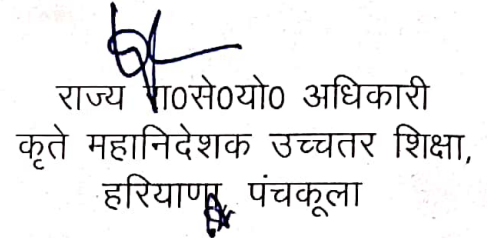 राज्य रा0से0यो0 अधिकारी
कृते महानिदेशक उच्चतर शिक्षा,
हरियाणा, पंचकूला